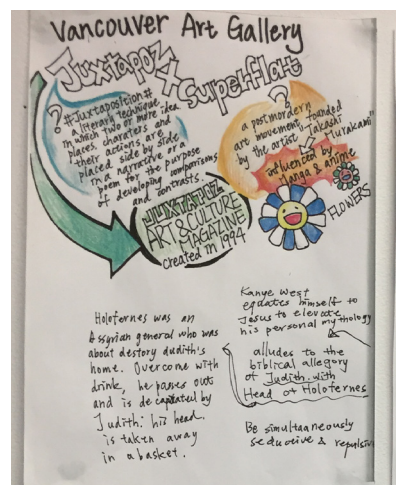 Vancouver Art Gallery
Juxtapoz X Superflat
?
#Juxtaposition#
a literary technique
in which two or more idea
places, charaters and
their actions are
placed side by side
in a narrative or a
poem for the purpose
of developing comparisons
and contrasts.
?
a postmordern
art movement founded
by the artist "Takashi
Murakami"
influenced by
Manga & anime
FLOWERS
JUXTAPOZ
ART & CULTURE
MAGAZINE
created in 1994
Holofernes was an
Assyrian general who was
about destory dudith's
home. Overcome with
drink, he passes out
and is decapitated by
Judith: his head
is taken away
in a basket.
Kanye West
equates himself to
Jesus to elevate
his personal mythology
alludes to the
biblical allegory
of Judith with
Head of Holofernes
Be simultaaneously
seductive & repulsive